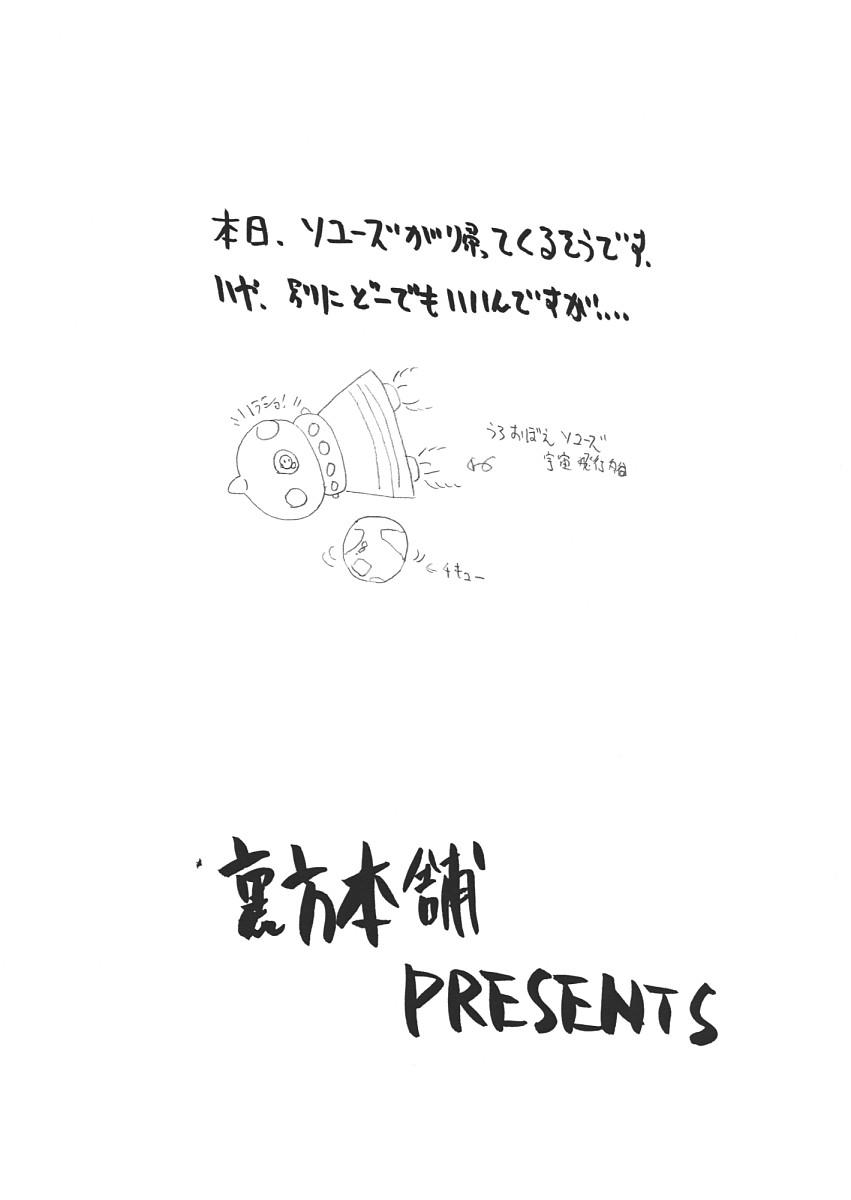 本日、ソユーズが帰ってくるそうです、
いや、別にどーでもいいんですが....
ハラショ!
うろおぼえソユーズ
宇宙飛行船
←チキュー
裏方本舗
PRESENTS